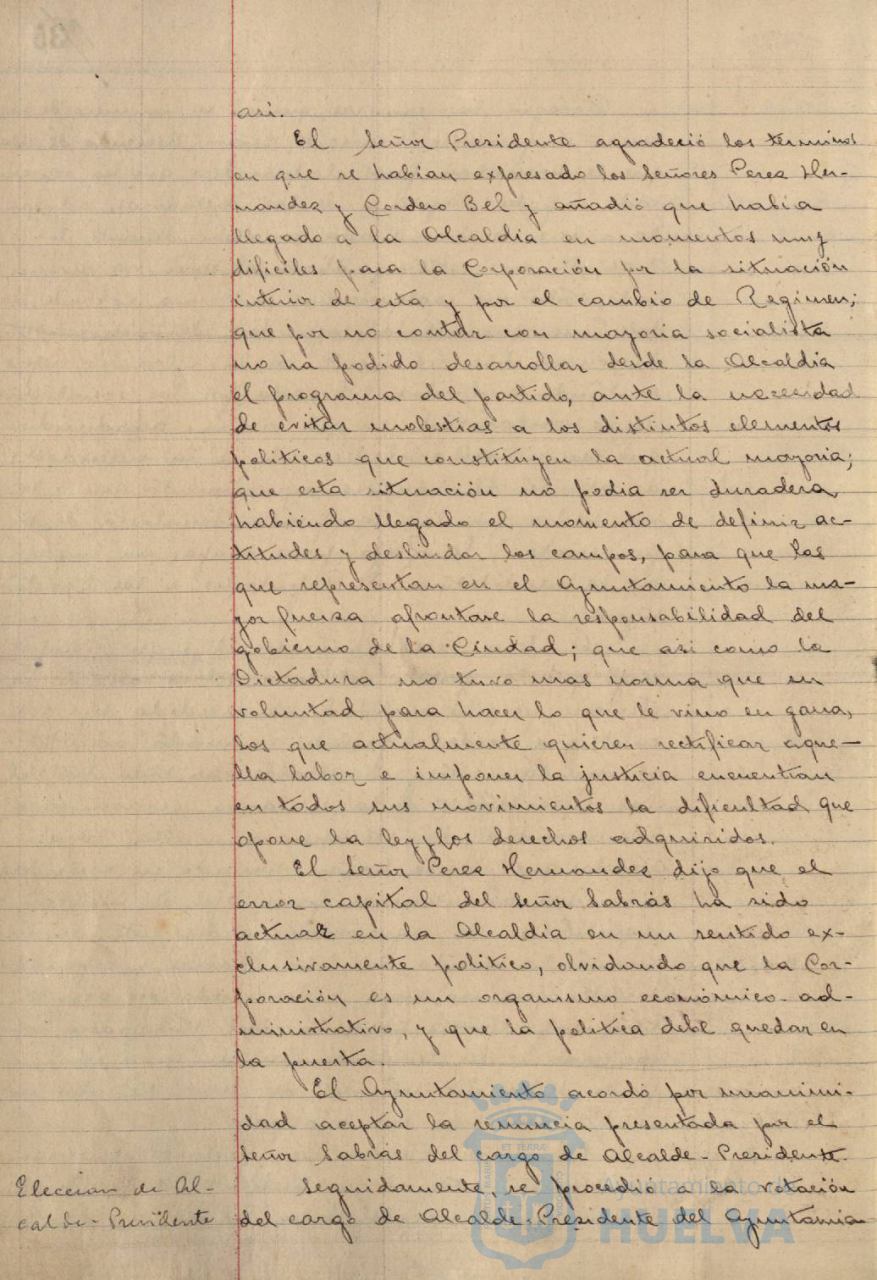 asi.
El Señor Presidente agradeció los términos
en que se habían expresado los Señores Perez Her-
nandez y Cordero Bel y añadió que había
llegado a la Alcaldía en momentos muy
dificiles para la Corporación por la situación
interior de esta y por el cambio de Regimen;
que por no contar con mayoria socialista
no ha podido desarrollar desde la Alcaldia
el programa del partido, ante la necesidad
de evitar molestias a los distintos elementos
politicos que constituyen la actual mayoria;
que esta situación no podia ser duradera,
habiendo llegado el momento de definir ac-
titudes y deslindar los campos, para que los
que representan en el Ayuntamiento la ma-
yor fuerza afrontase la responsabilidad del
gobierno de la Ciudad; que asi como la
Dictadura no tuvo mas norma que su
voluntad para hacer lo que le vino en gana,
los que actualmente quieren rectificar aque-
lla labor e imponer la justicia encuentran
en todos sus movimientos la dificultad que
opone la ley y los derechos adquiridos.
El Señor Perez Hernandez dijo que el
error capital del Señor Sabrás ha sido
actuar en la Alcaldía en un sentido ex-
clusivamente politico, olvidando que la Cor-
poración es un organismo económico-ad-
ministrativo, y que la politica debe quedar en
la puerta.
El Ayuntamiento acordó por unanimi-
dad aceptar la renuncia presentada por el
Señor Sabrás del cargo de Alcalde-Presidente.
Eleccion de Al-
calde-Presidente
Seguidamente, se procedió a la votación
del cargo de Alcalde-Presidente del Ayuntamien
Ayuntamiento de
HUELVA